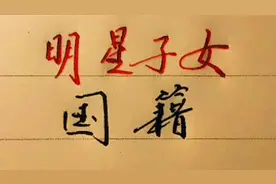 明星子女
国籍